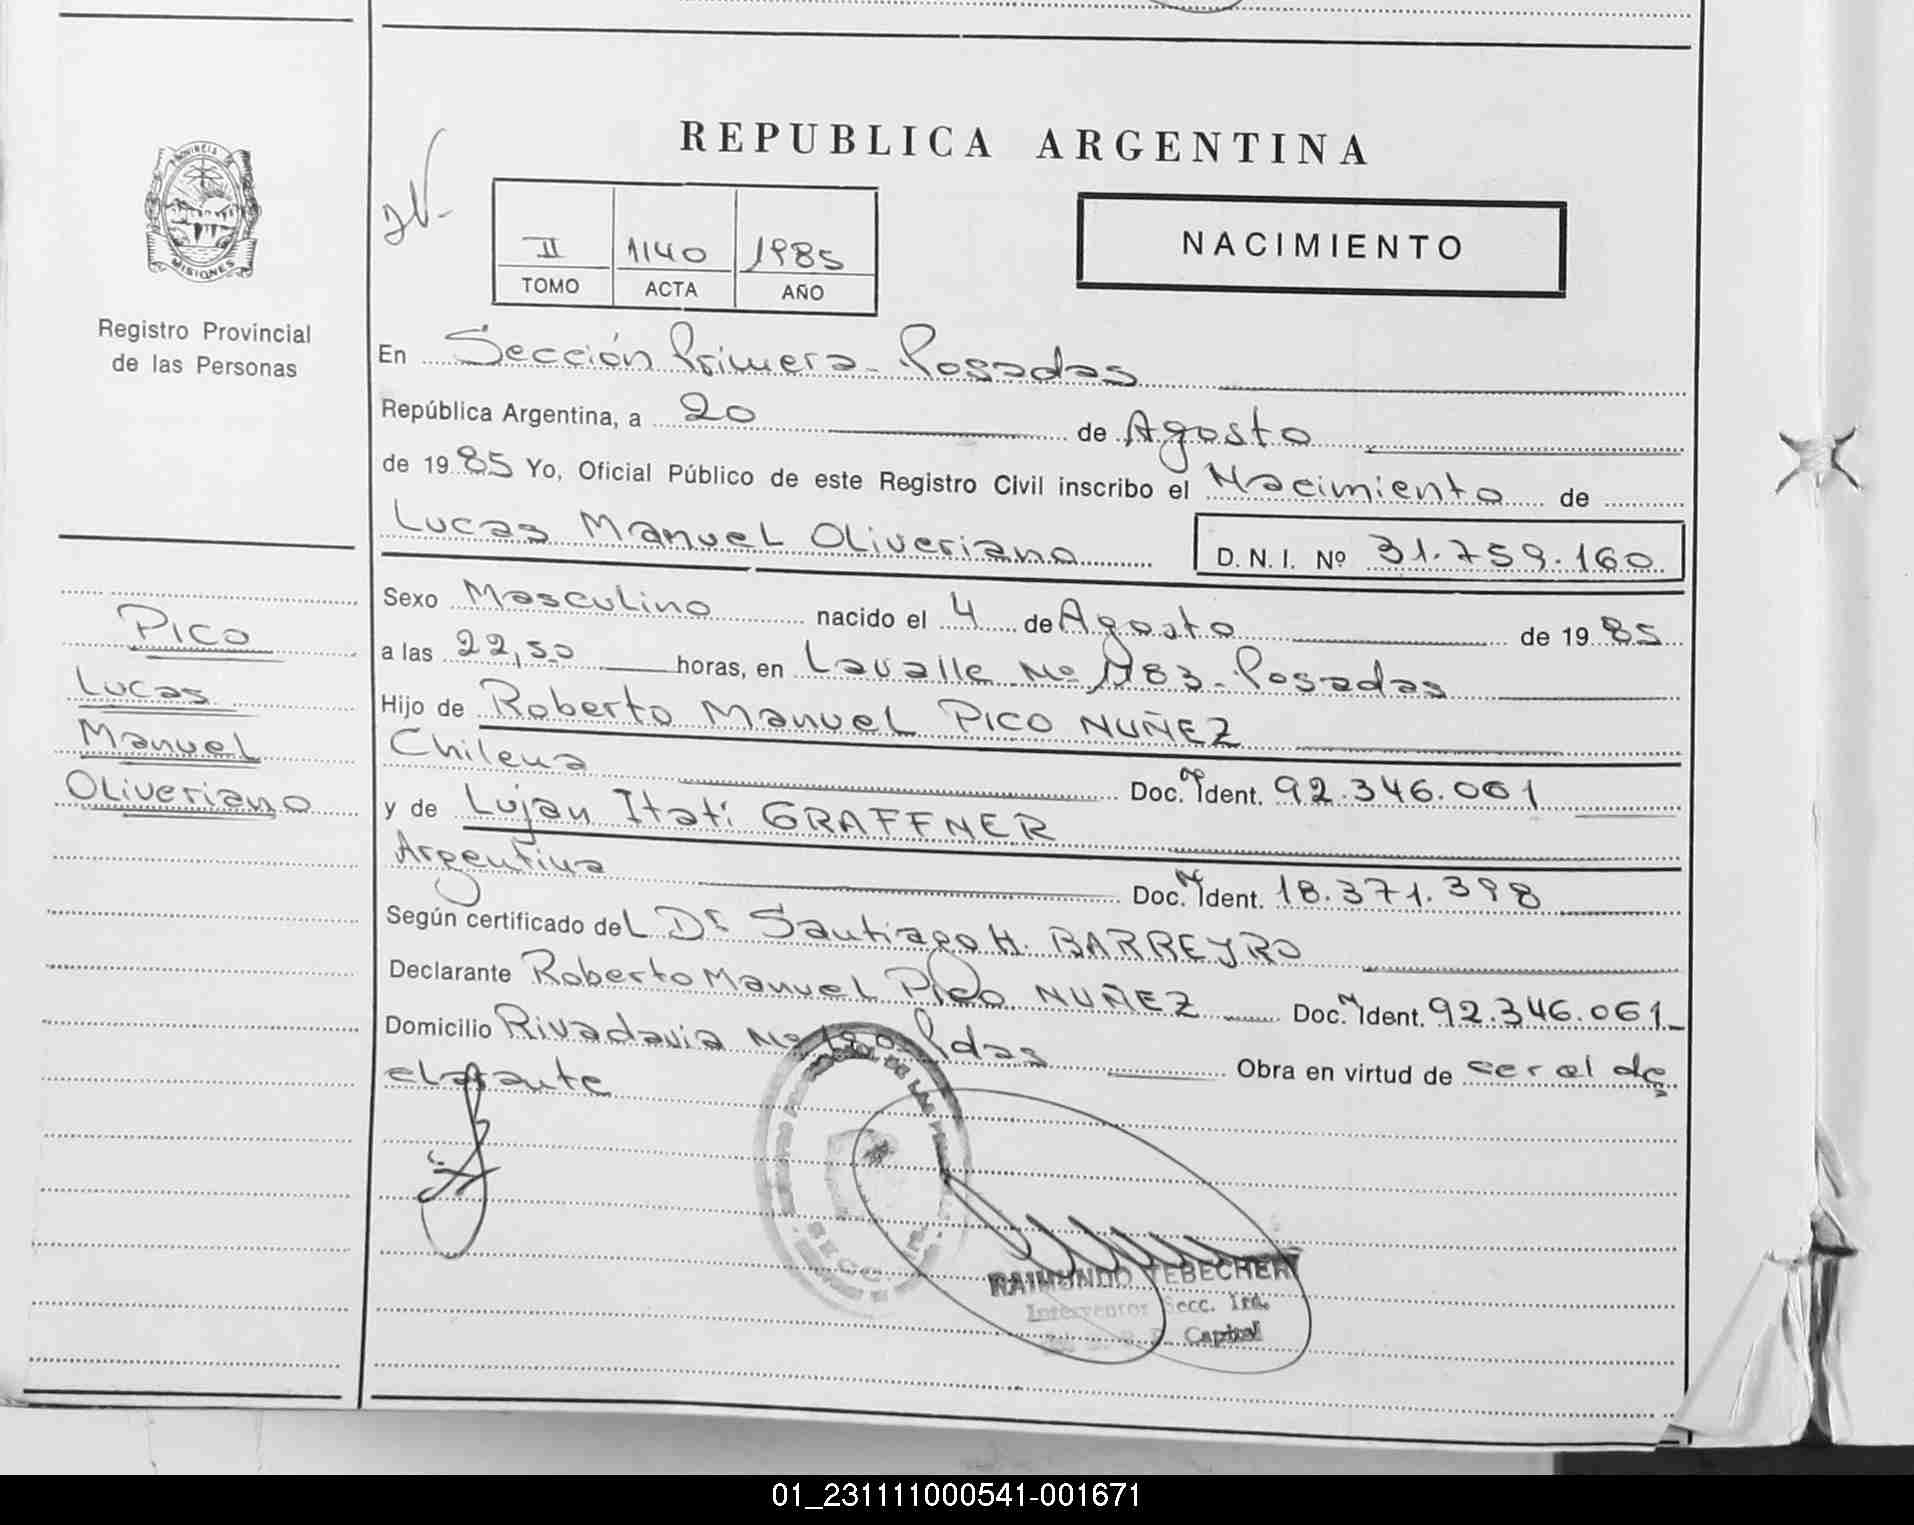 REPUBLICA ARGENTINA
PROVINCIA DE
MISIONES
Registro Provincial
de las Personas
II 1140 1985
TOMO ACTA AÑO
NACIMIENTO
En Sección Primera - Posadas
República Argentina, a 20 de Agosto
de 1985 Yo, Oficial Público de este Registro Civil inscribo el Nacimiento de
Lucas Manuel Oliveriano D. N. I. Nº 31.759.160
Sexo Masculino nacido el 4 de Agosto de 1985
a las 22,50 horas, en Lavalle Nº 1183 - Posadas
Hijo de Roberto Manuel PICO NUÑEZ
Chilena Doc. Ident. 92.346.061
y de Lujan Itatí GRAFFNER
Argentina Doc. Ident. 18.371.398
Según certificado del Dr Santiago H. BARREYRO
Declarante Roberto Manuel Pico NUÑEZ Doc. Ident. 92.346.061
Domicilio Rivadavia Nº Pdas Obra en virtud de ser el de
clarante
Pico
Lucas
Manuel
Oliveriano
SECC.
RAIMUNDO TEBECHERI
Interventor Secc. 1ra.
Capital
01_231111000541-001671